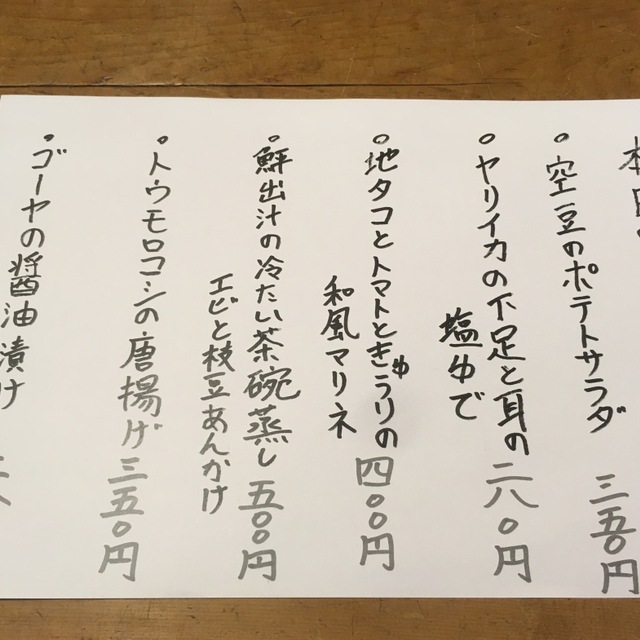 本日の
・空豆のポテトサラダ 三五〇円
・ヤリイカの下足と耳の
塩ゆで 二八〇円
・地タコとトマトときゅうりの
和風マリネ 四〇〇円
・鮮出汁の冷たい茶碗蒸し
エビと枝豆あんかけ 五〇〇円
・トウモロコシの唐揚げ 三五〇円
・ゴーヤの醤油漬け